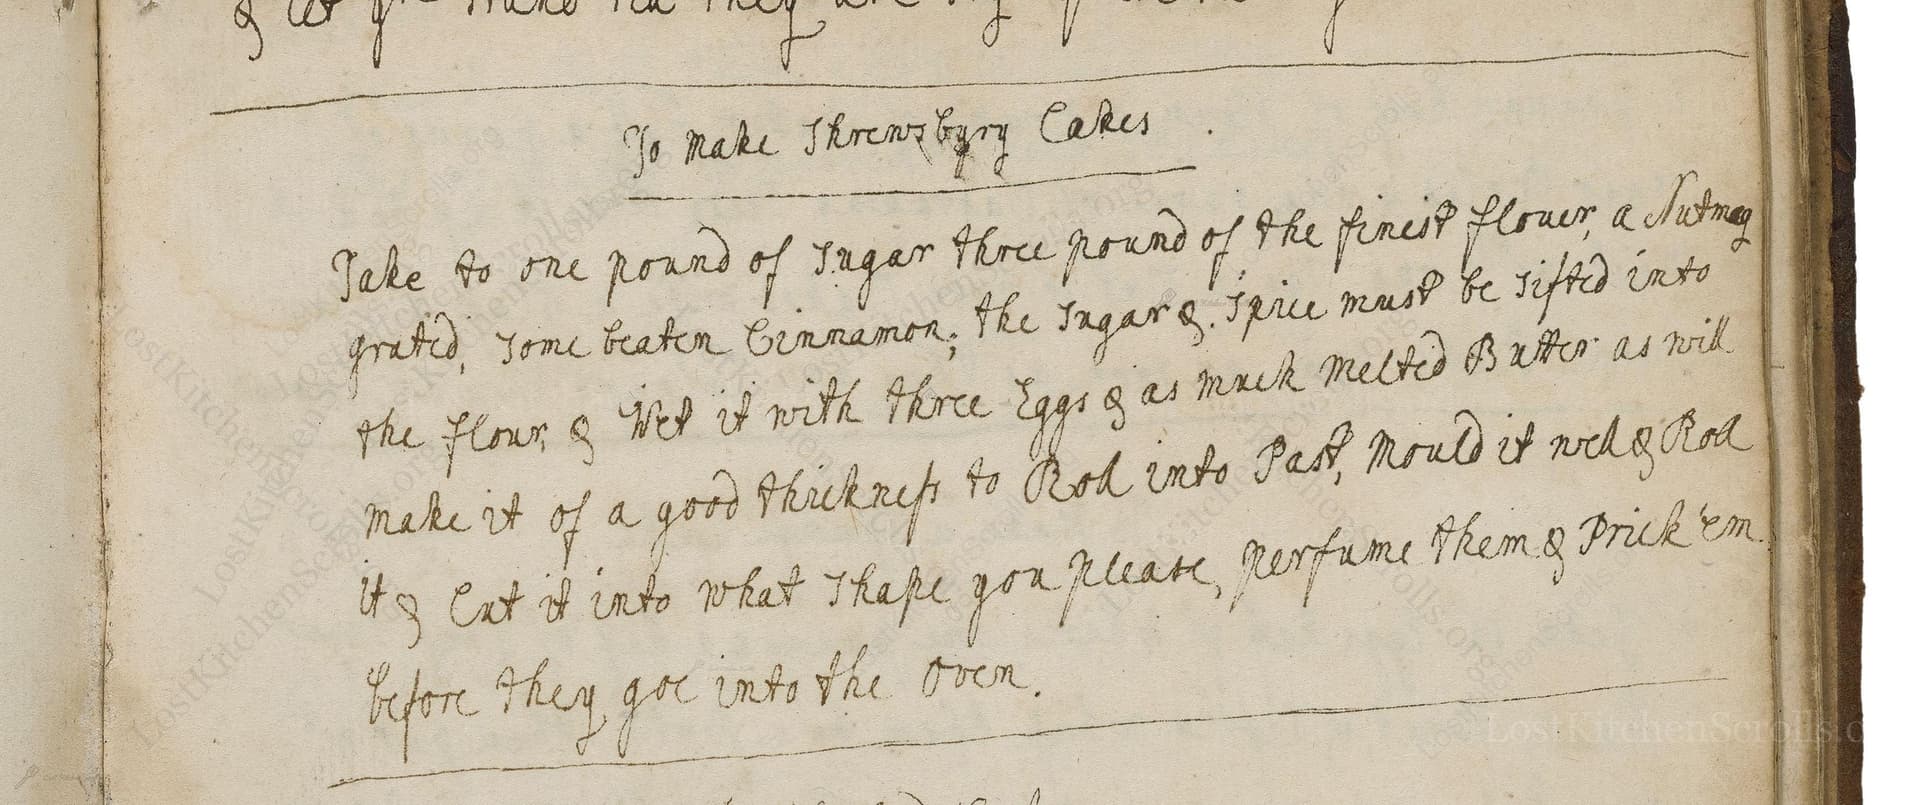 To make Shrewsbyry Cakes .
Take to one pound of Sugar three pound of the finest flouer, a Nutmeg
grated, some beaten Cinnamon; the Sugar & Spice must be sifted into
the flour, & Wet it with three Eggs & as much melted Butter as will
make it of a good thickness to Roll into Past, Mould it well & Roll
it & Cut it into what shape you please, perfume them & Prick 'em
before they goe into the Oven.
LostKitchenScrolls.o